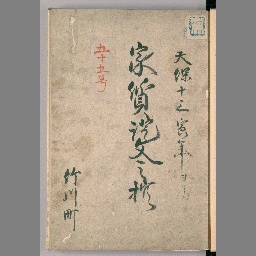 天保十三寅年ヨリ
家質証文之控
五十五号
竹川町